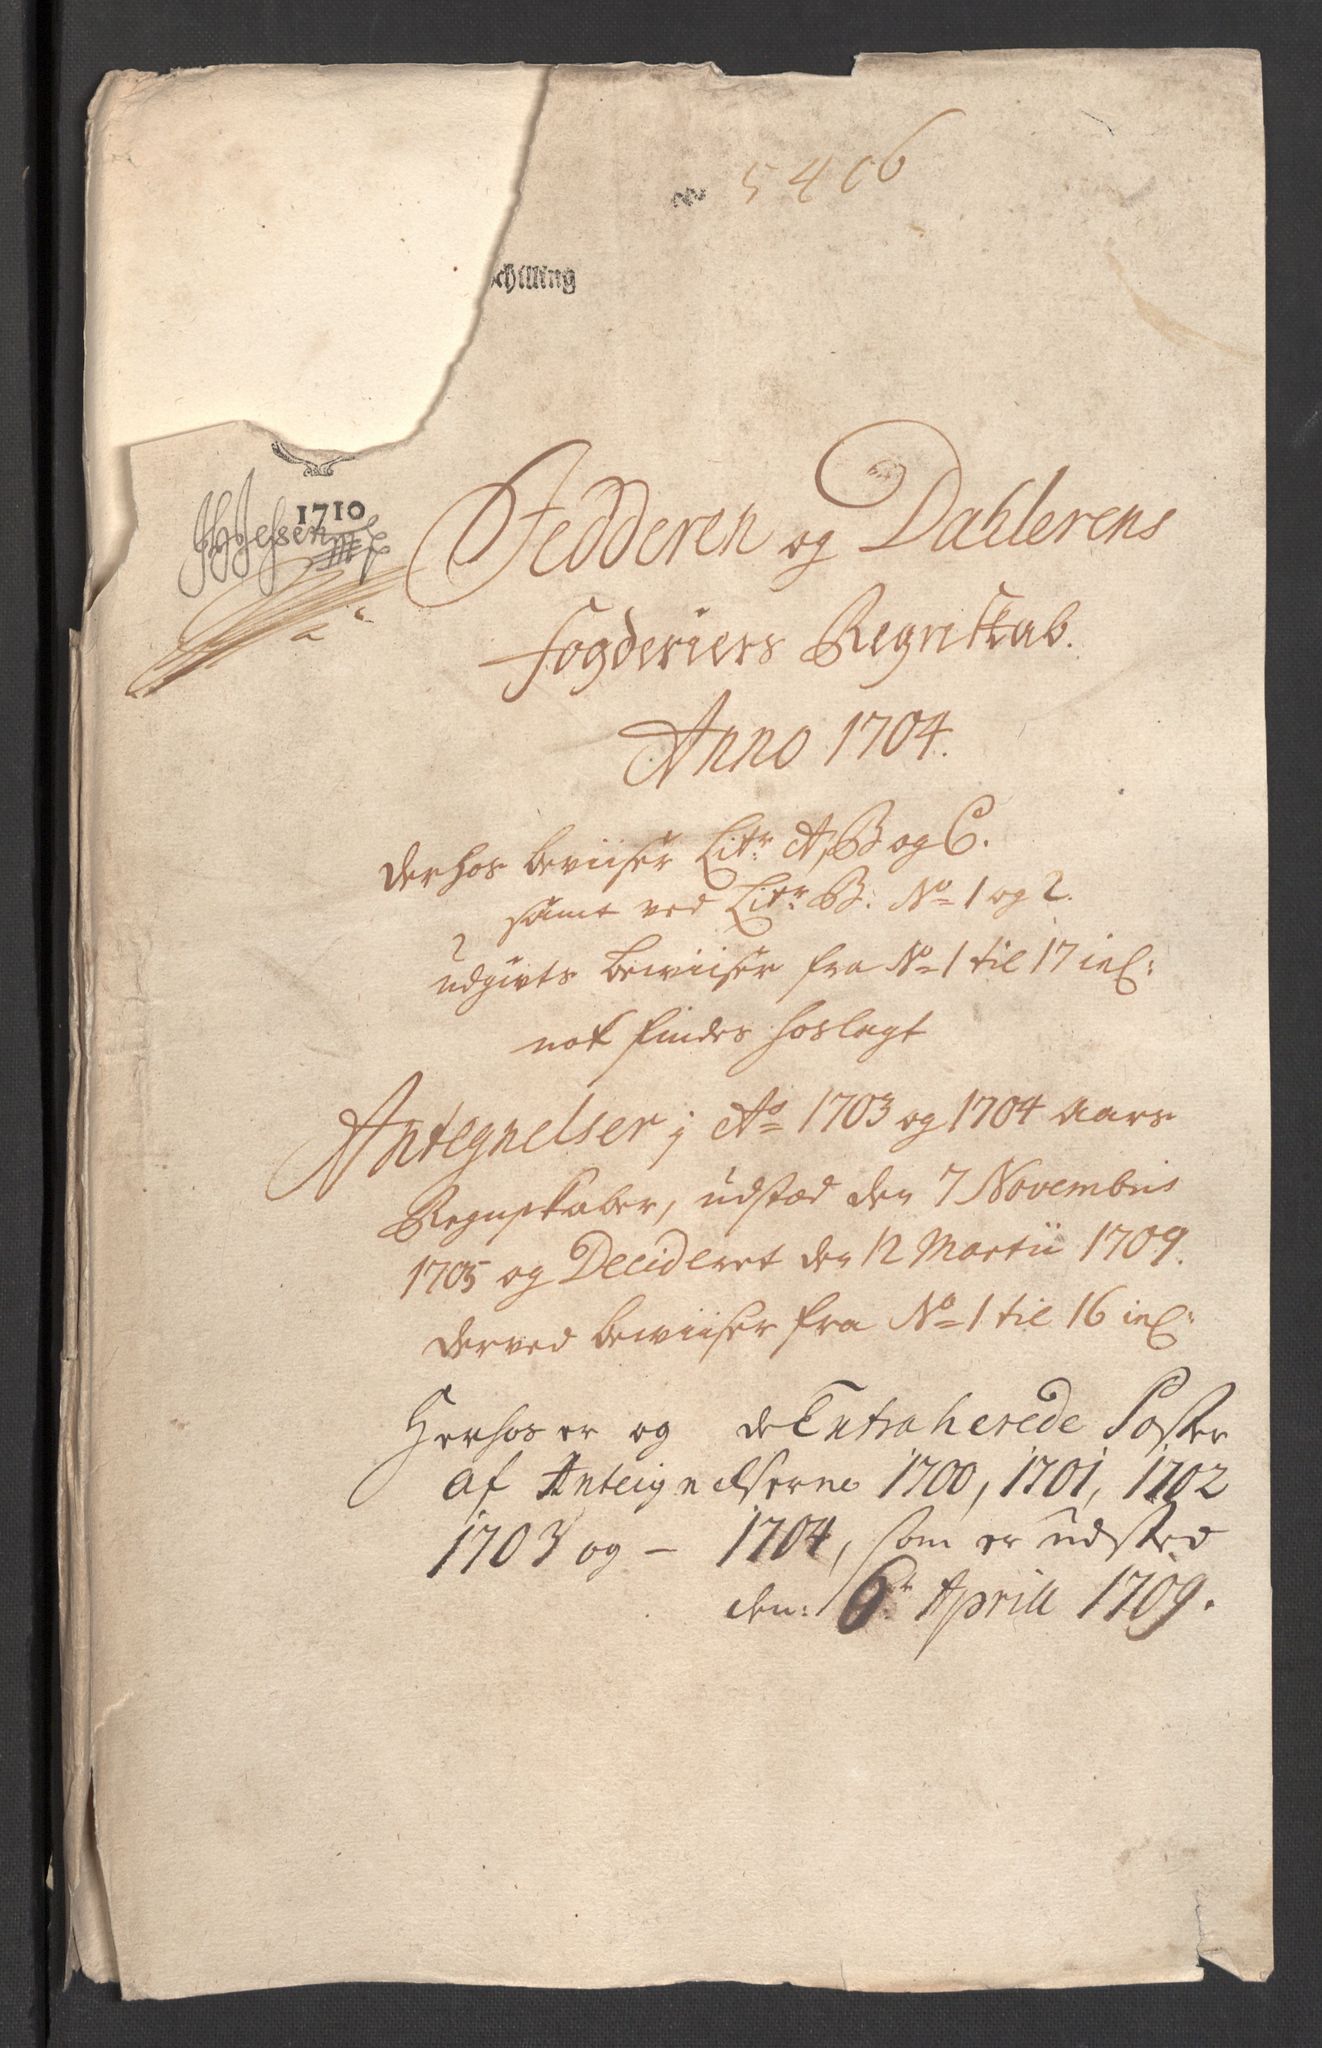 5406
schilling
1710
HHJessen
Jedderen og Dahlerens
Fogderiers Regnskab.
Anno 1704.
derhos beviiser Litr: A, B og C.
samt ved Litr: B. No 1 og 2.
udgivts bewiiser fra No 1 til 17 incl:
nok findes hoslagt
Antegnelser j Ao 1703 og 1704 aars
Regnskaber, udstæd den 7 Novembris
1705 og Decideret den 12 Martii 1709.
derved bewiiser fra No 1 til 16 incl:
Herhos er og de Extraherede Poster
af Anteignelserne 1700, 1701, 1702
1703 og - 1704, som er udsted
den: 6te Aprill 1709.